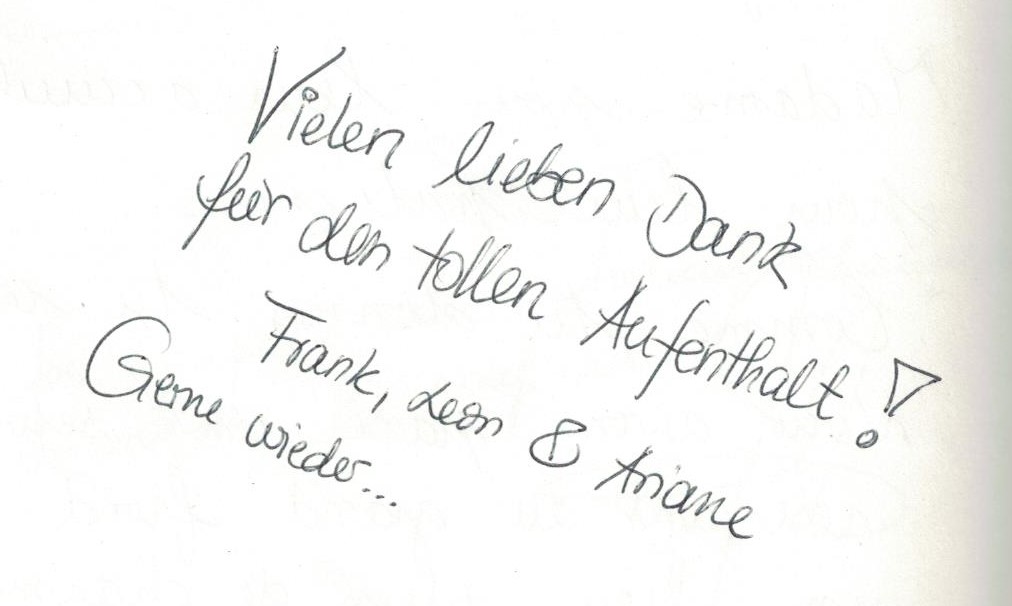 Vielen lieben Dank
für den tollen Aufenthalt!
Frank, Leon & Ariane
Gerne wieder...